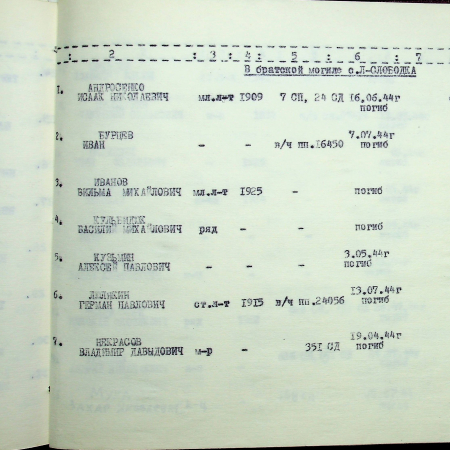 : 2 : 3 : 4 : 5 : 6 : 7
В братской могиле с.Л-СЛОБОДКА
1. АНДРОСЕНКО
ИСААК НИКОЛАЕВИЧ мл.л-т 1909 7 СП, 24 СД 16.06.44г
погиб
2. БУРЦЕВ 7.07.44г
ИВАН - - в/ч пп.16450 погиб
3. ИВАНОВ
ВИЛЬМА МИХАЙЛОВИЧ мл.л-т 1925 - погиб
4.
ВАСИЛИЙ МИХАЙЛОВИЧ ряд - - погиб
5. КУЗЬМИН 3.05.44г
АЛЕКСЕЙ ПАВЛОВИЧ - - - погиб
6. 13.07.44г
ГЕРМАН ПАВЛОВИЧ ст.л-т 1915 в/ч пп.24056 погиб
7. НЕКРАСОВ 19.04.44г
ВЛАДИМИР ДАВЫДОВИЧ м-р - 351 СД погиб